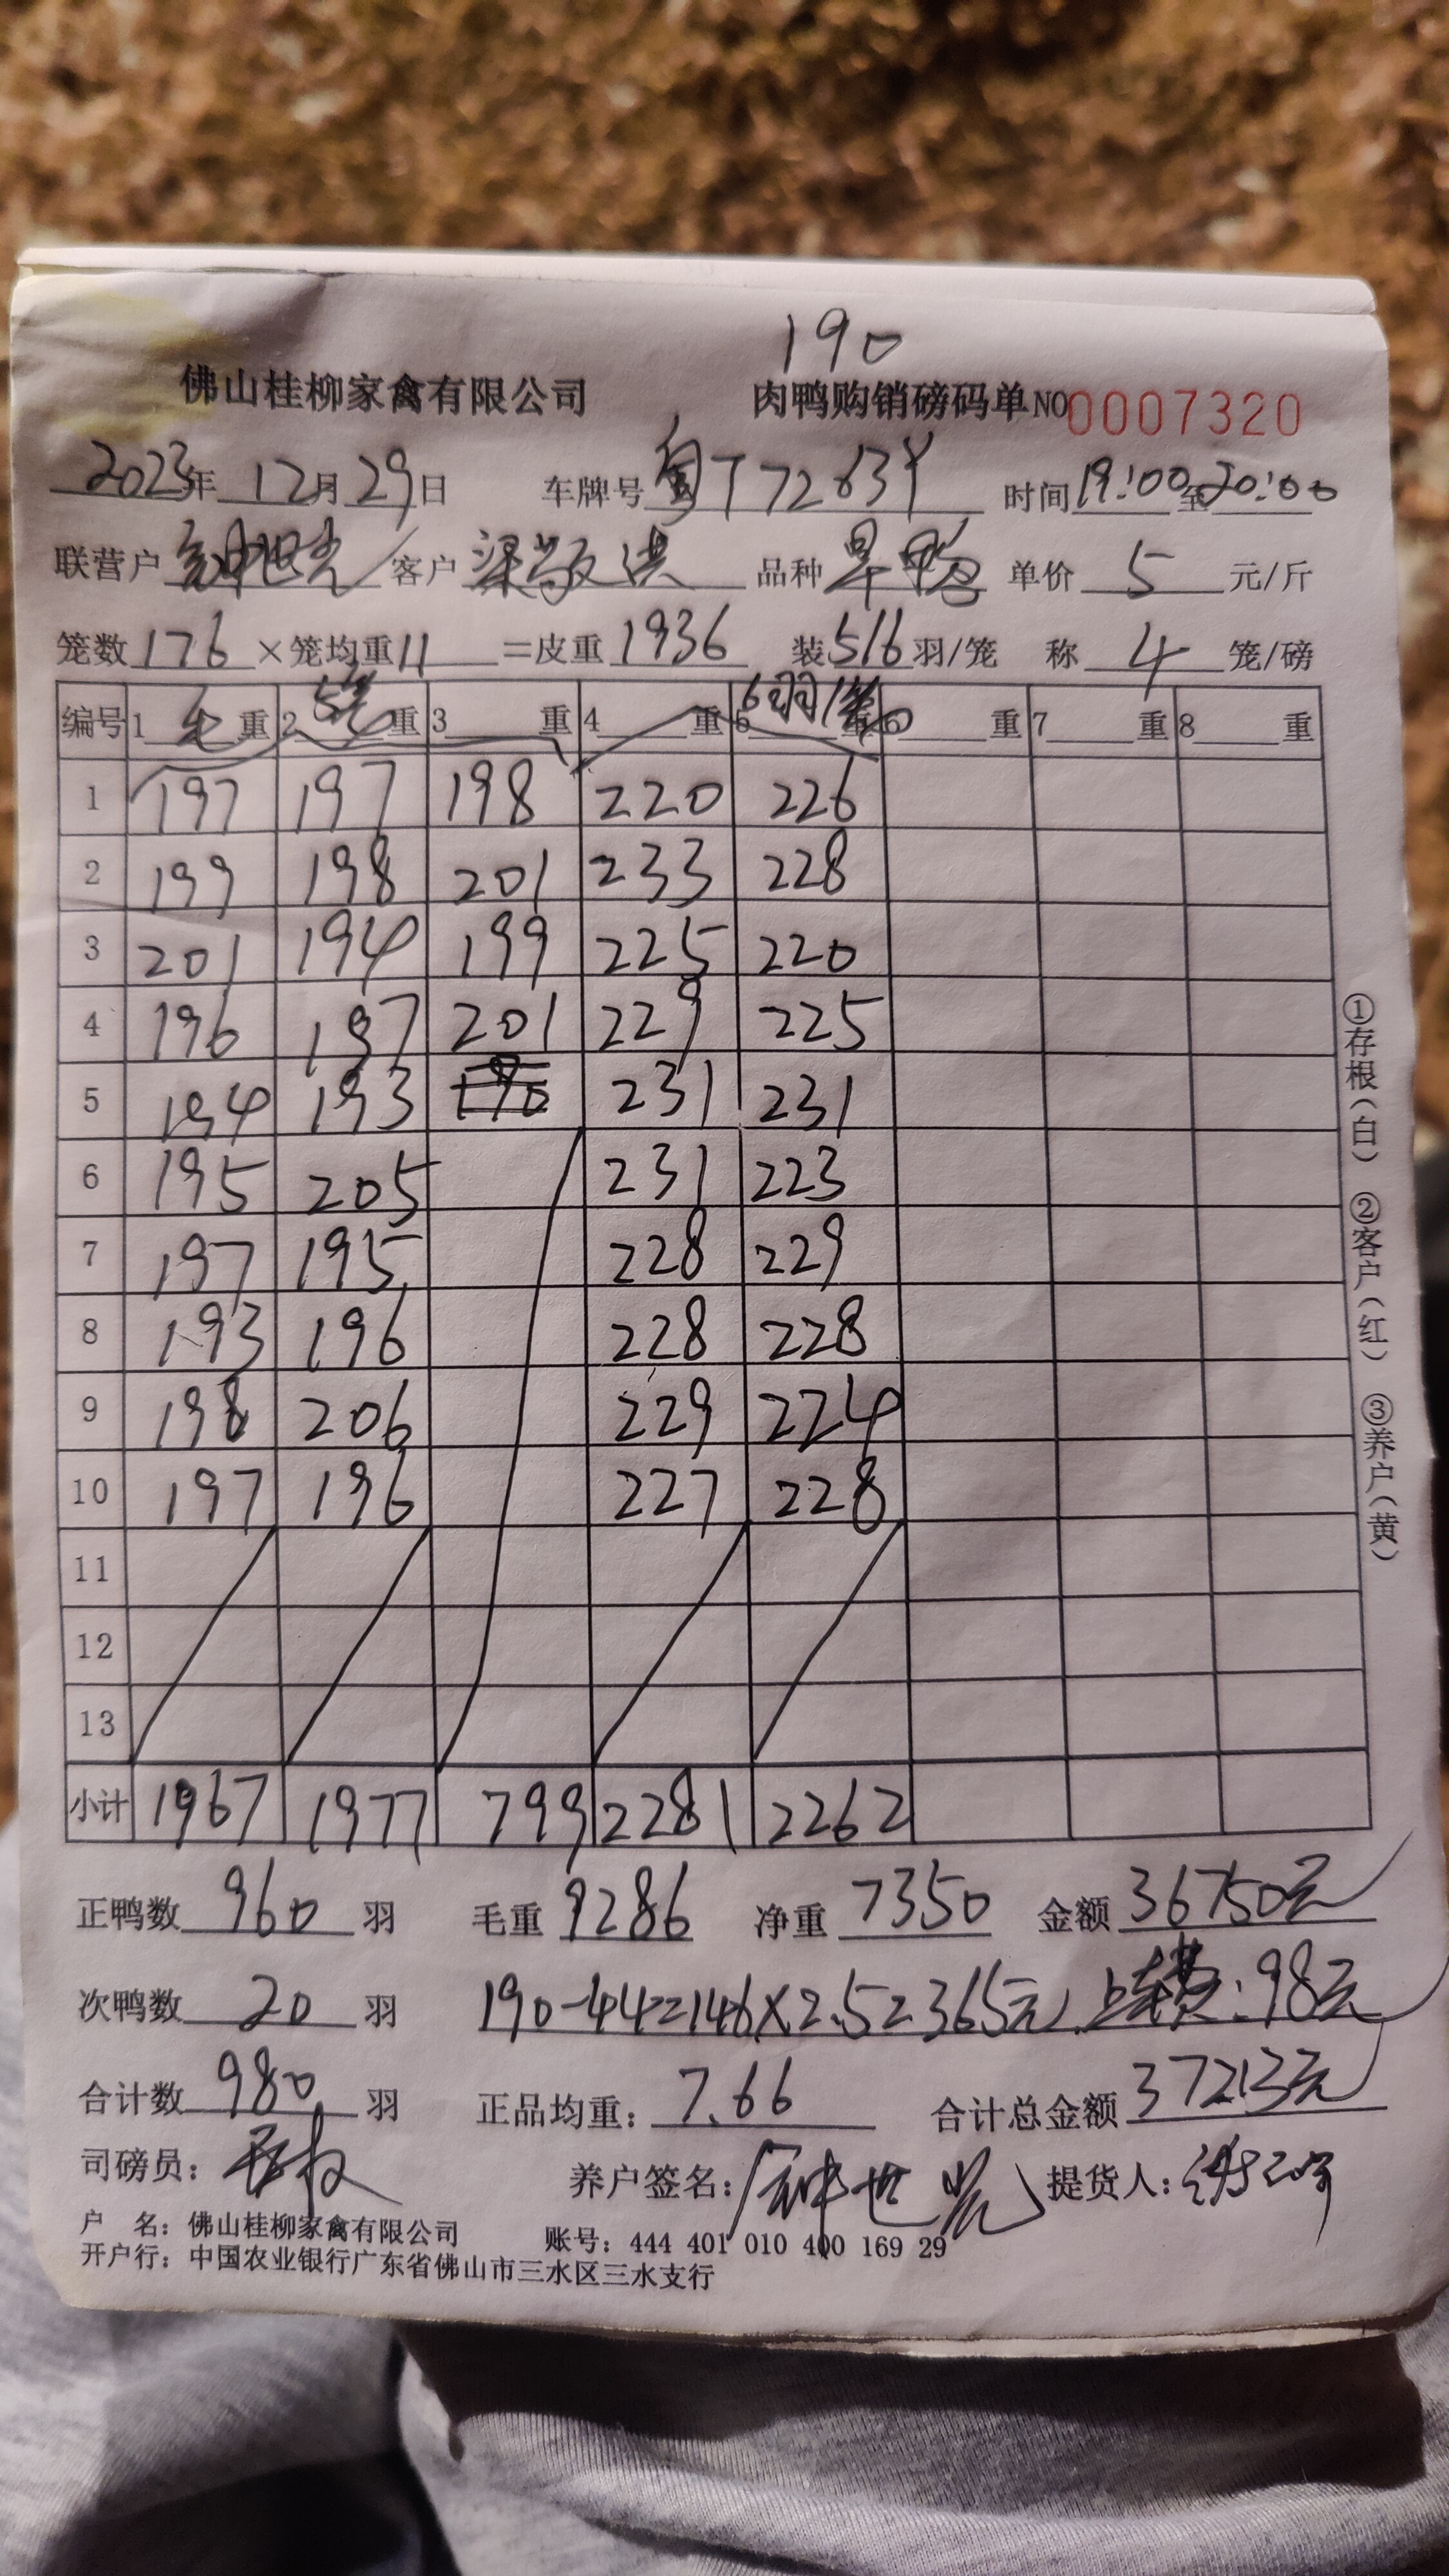 190
佛山桂柳家禽有限公司 肉鸭购销磅码单NO 0007320
2023年 12月 29日 车牌号 粤T7263Y 时间 19:00 至 20:00
联营户 钟世光 客户 梁敬洪 品种 旱鸭 单价 5 元/斤
笼数 176 ×笼均重 11 =皮重 1936 装 5/6 羽/笼 称 4 笼/磅
6羽/笼
编号 1 毛 重 2 重 3 重 4 重 5 重 6 重 7 重 8 重
1 197 197 198 220 226
2 199 198 201 233 228
3 201 194 199 225 220
4 196 197 201 229 225
5 194 193 196 231 231
6 195 205 231 223
7 197 195 228 229
8 193 196 228 228
9 198 206 229 224
10 197 196 227 228
11
12
13
小计 1967 1977 799 2281 2262
正鸭数 960 羽 毛重 9286 净重 7350 金额 36750元
次鸭数 20 羽 190-44=146×2.5=365元. 上车费:98元
合计数 980 羽 正品均重: 7.66 合计总金额 37213元
司磅员: 养户签名: 钟世光 提货人:
户 名: 佛山桂柳家禽有限公司 账号: 444 401 010 400 169 29
开户行: 中国农业银行广东省佛山市三水区三水支行
①存根(白) ②客户(红) ③养户(黄)